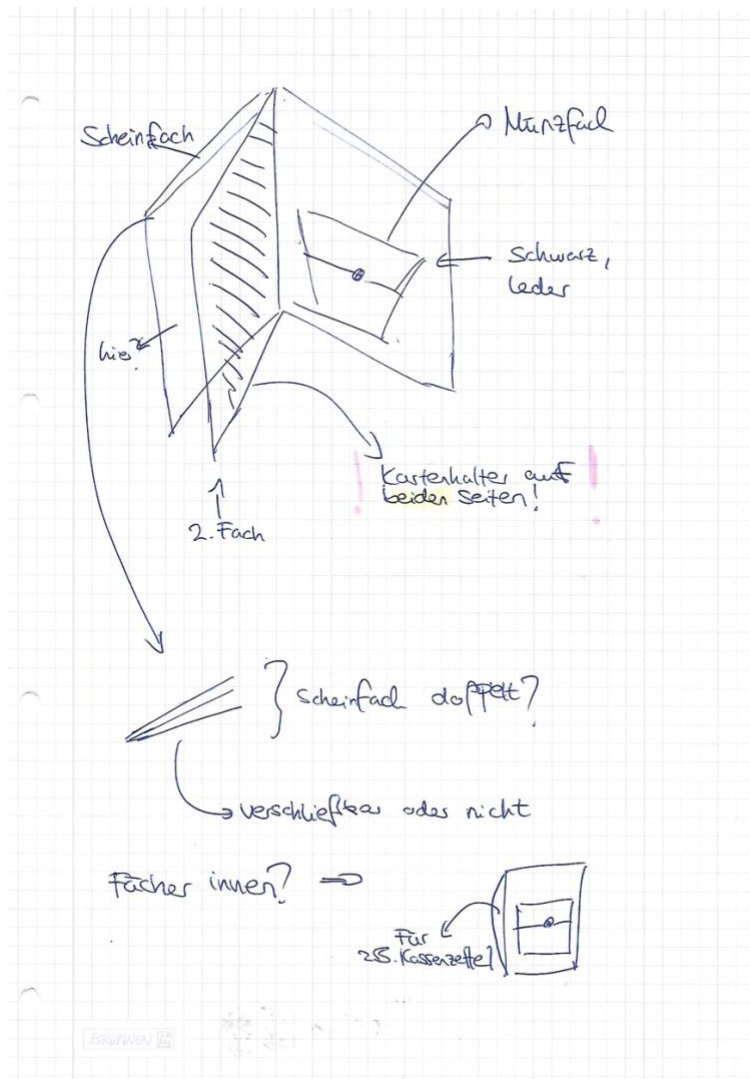 Scheinfach
Münzfach
Schwarz,
Leder
hier
Kartenhalter auf
beiden Seiten!
2. Fach
Scheinfach doppelt?
verschließbar oder nicht
Fächer innen?
Für
z.B. Kassenzettel
BRUNNEN